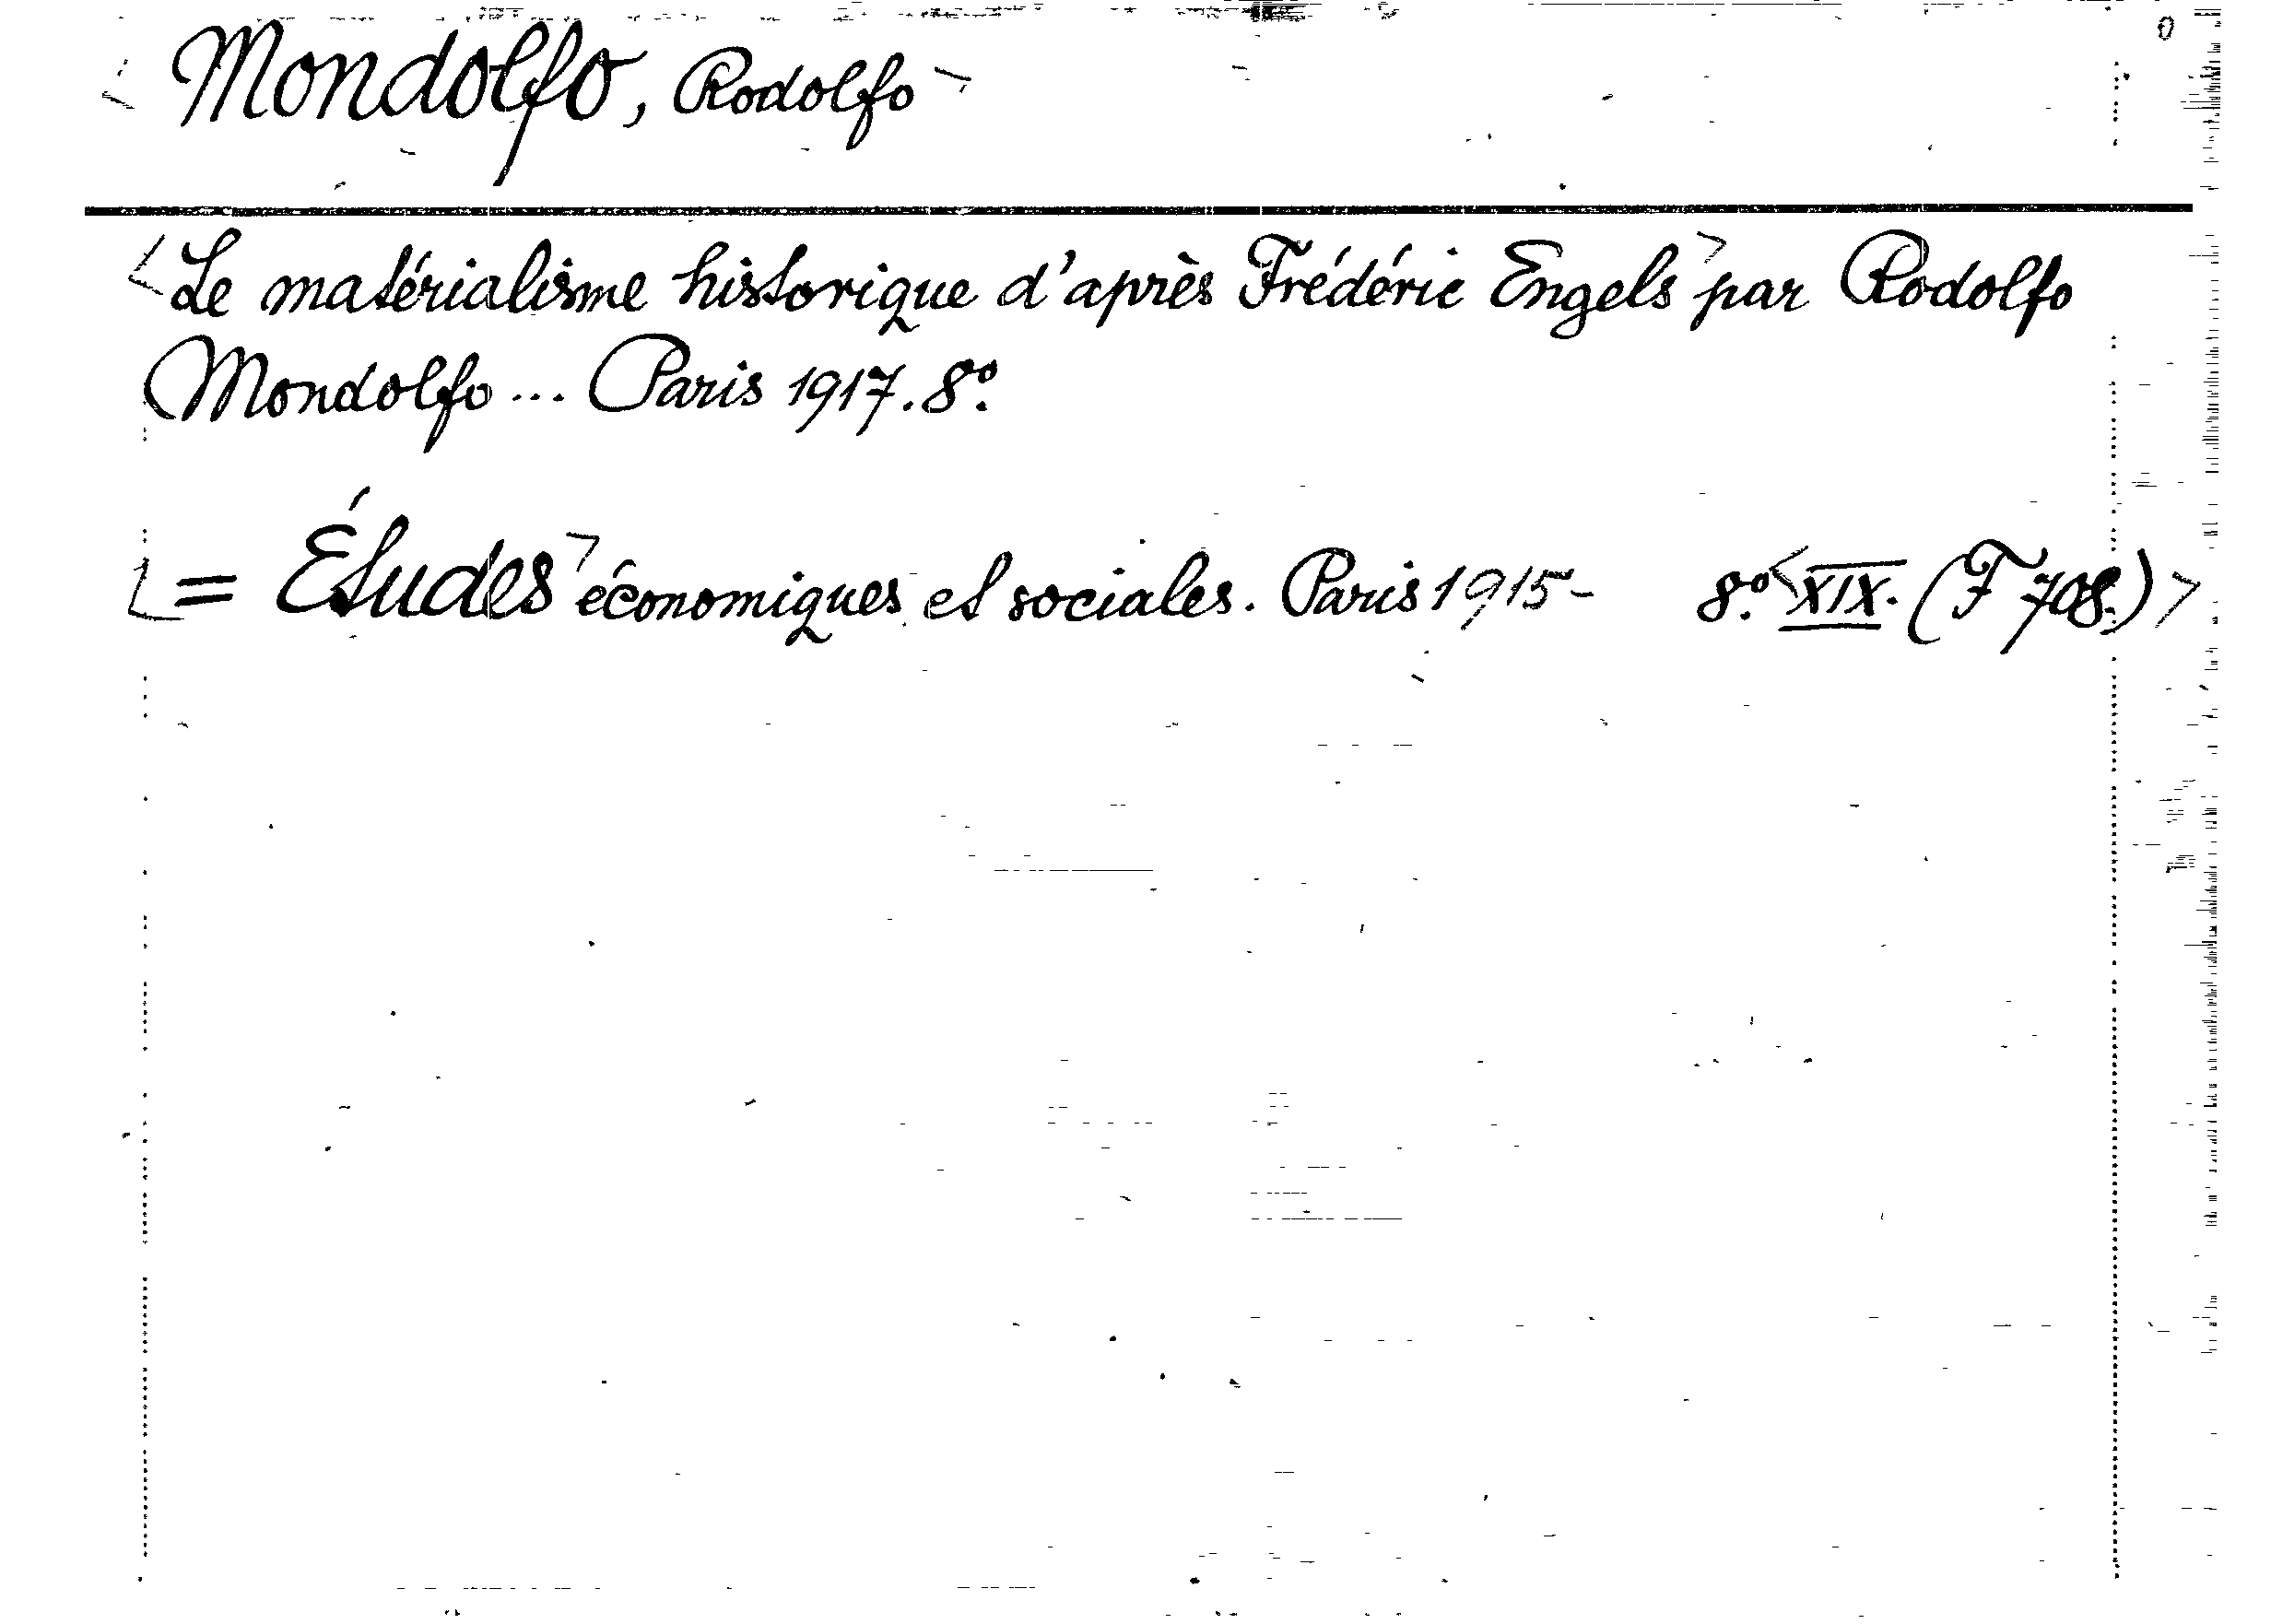 Mondolfo, Rodolfo
Le matérialisme historique d'après Frédéric Engels par Rodolfo
Mondolfo ... Paris 1917. 8º.
= Études économiques et sociales. Paris 1915- 8º. XIX. (F 708.)